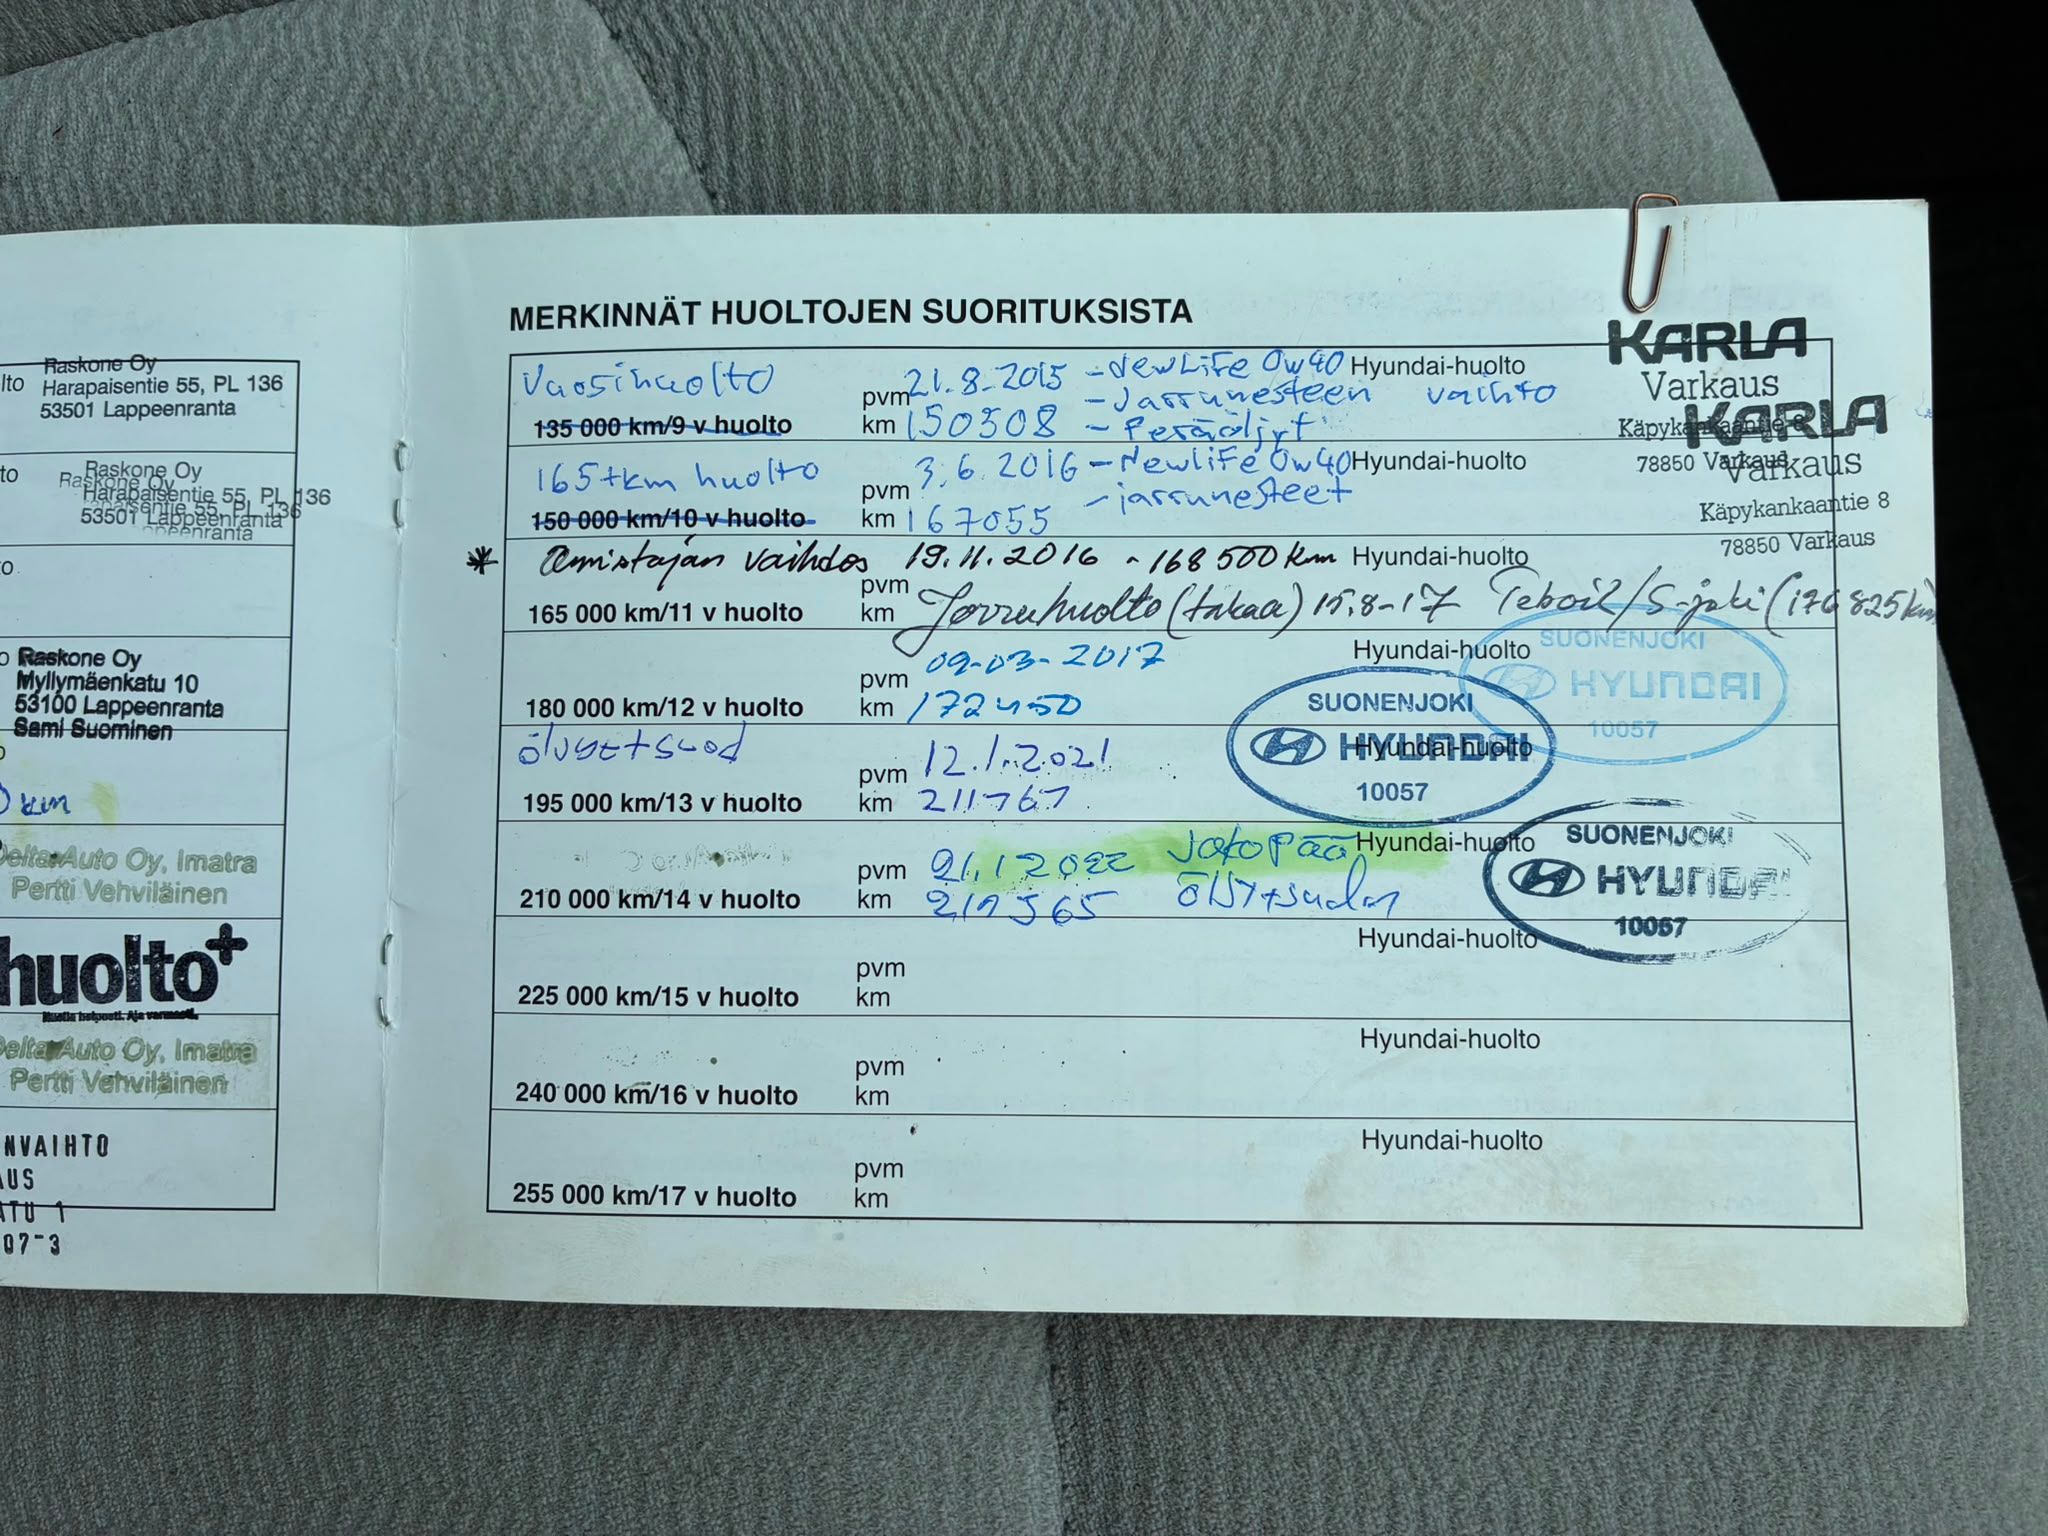 Raskone Oy
lto Harapaisentie 55, PL 136
53501 Lappeenranta
to Raskone Oy
Raskone Oy
Harapaisentie 55, PL 136
53501 Lappeenranta
Raskone Oy
Myllymäenkatu 10
53100 Lappeenranta
Sami Suominen
km
Delta Auto Oy, Imatra
Pertti Vehviläinen
huolto+
Huolla helposti. Aja varmasti.
Delta Auto Oy, Imatra
Pertti Vehviläinen
NVAIHTO
AUS
ATU 1
07-3
MERKINNÄT HUOLTOJEN SUORITUKSISTA
KARLA
Varkaus
Käpykankaantie 8
78850 Varkaus
KARLA
Varkaus
Käpykankaantie 8
78850 Varkaus
Vuosihuolto pvm 21.8.2015 - NewLife 0w40 Hyundai-huolto
- Jarrunesteen vaihto
135 000 km/9 v huolto km 150308 - Peräöljyt
165tkm huolto pvm 3.6.2016 - Newlife 0w40 Hyundai-huolto
- jarrunesteet
150 000 km/10 v huolto km 167055
* Omistajan vaihdos 19.11.2016 - 168 500 km Hyundai-huolto
pvm
165 000 km/11 v huolto km Jarruhuolto (takaa) 15.8-17 Teboil/S-joki (176 825 km)
pvm 09-03-2017 Hyundai-huolto
180 000 km/12 v huolto km 172450
SUONENJOKI
HYUNDAI
10057
pvm 12.1.2021 Hyundai-huolto
195 000 km/13 v huolto km 211767
SUONENJOKI
HYUNDAI
10057
pvm 21.1 2022 Jakopää Hyundai-huolto
210 000 km/14 v huolto km
SUONENJOKI
HYUNDAI
10057
Hyundai-huolto
pvm
225 000 km/15 v huolto km
Hyundai-huolto
pvm
240 000 km/16 v huolto km
Hyundai-huolto
pvm
255 000 km/17 v huolto km